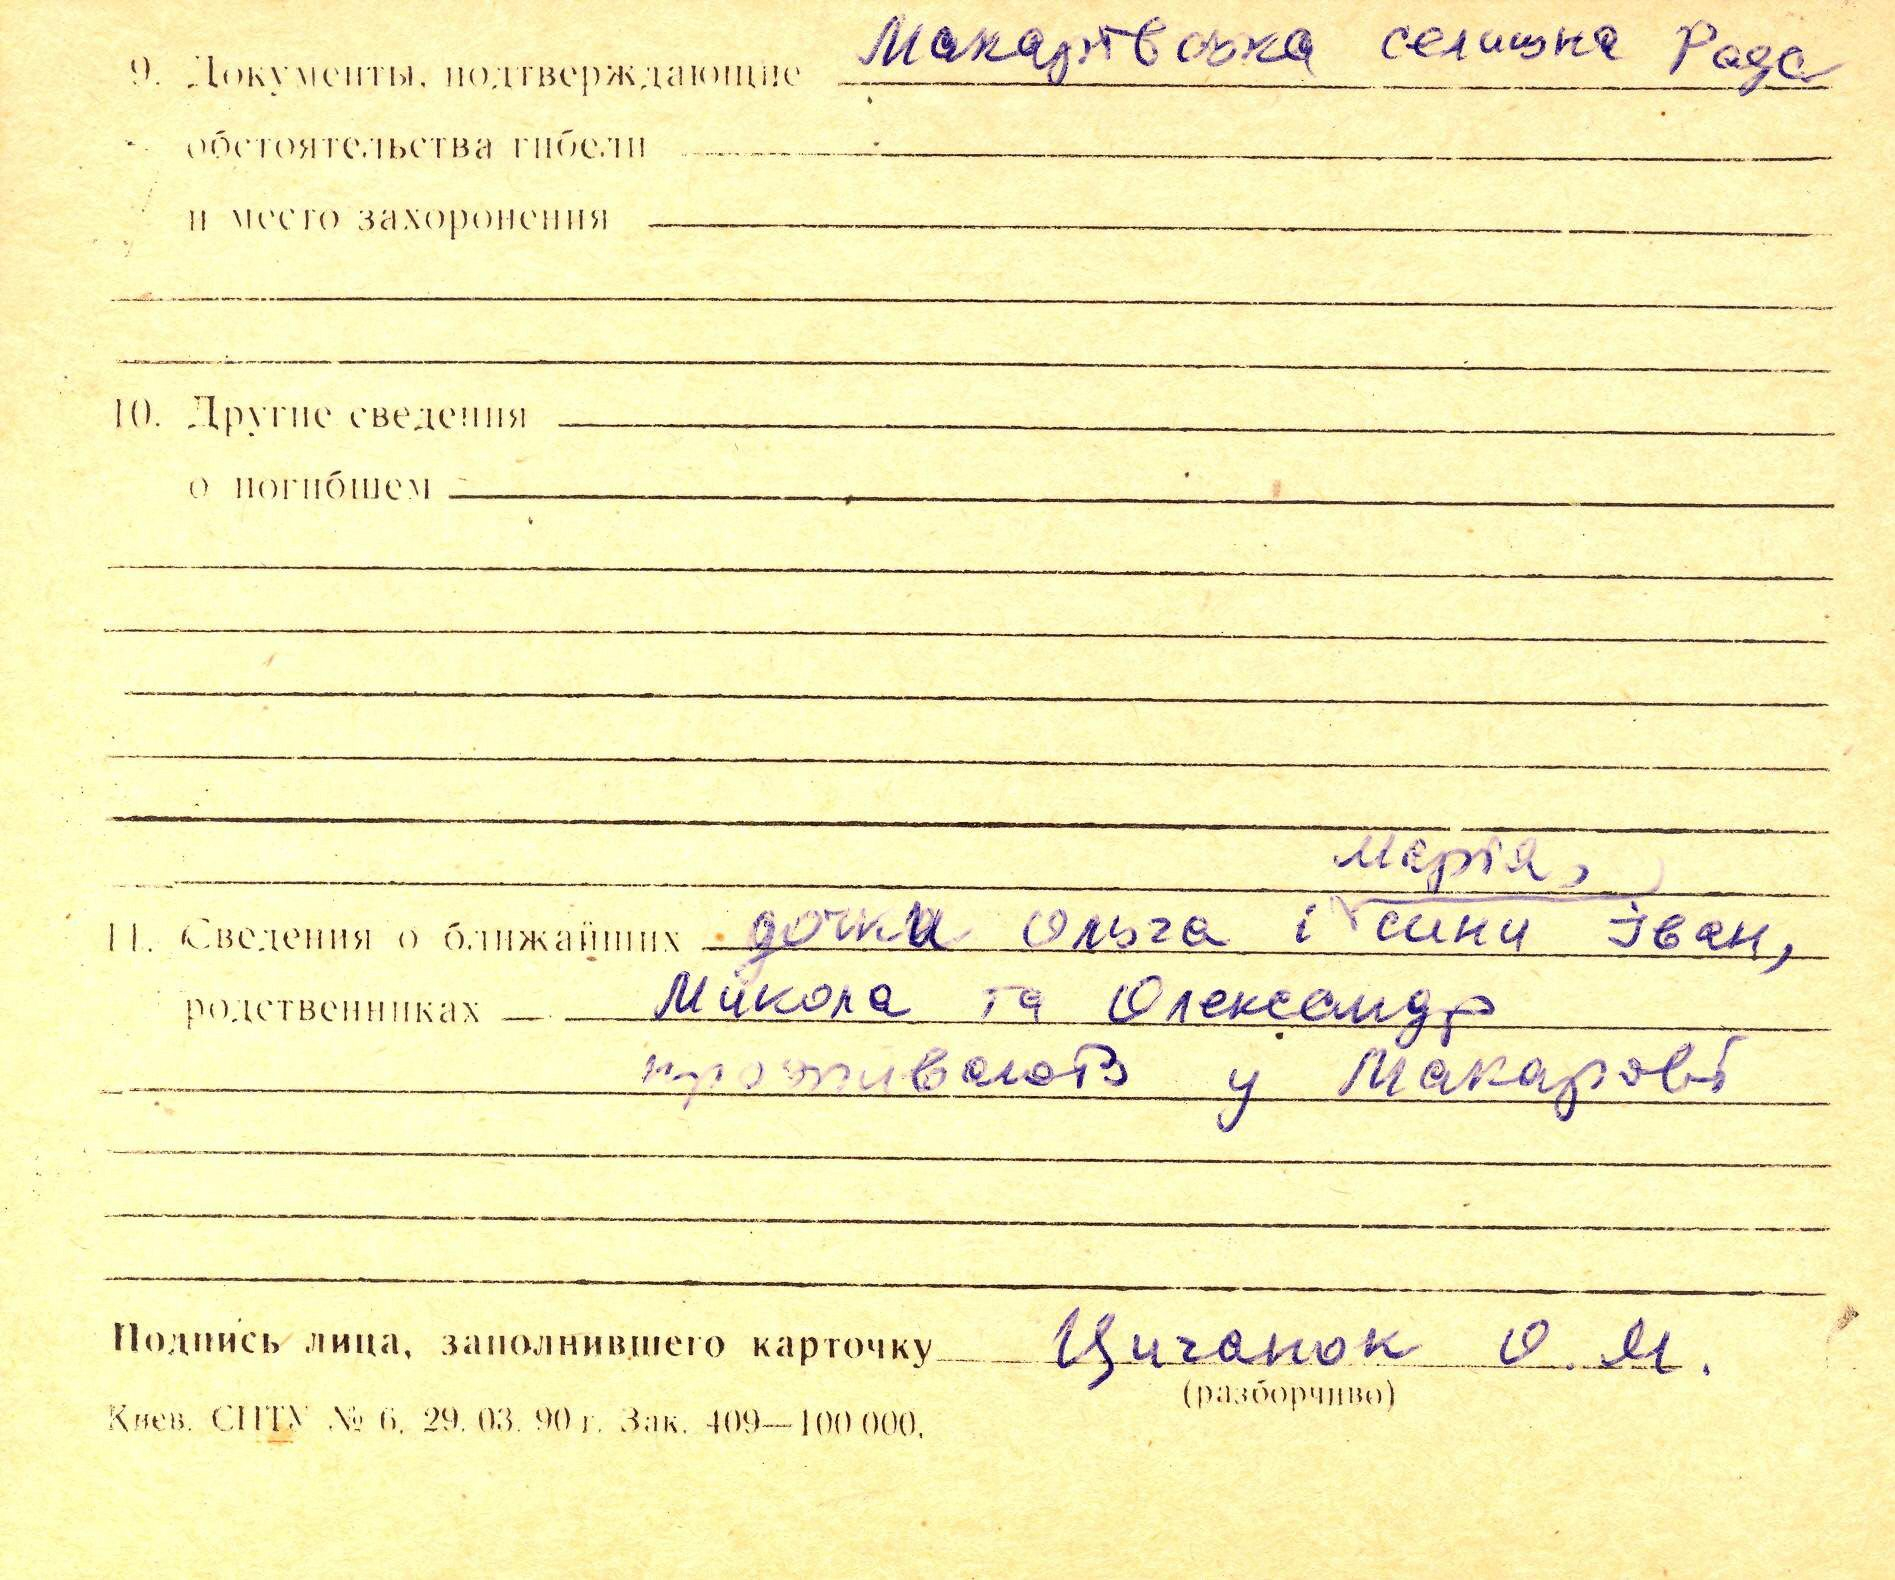 9. Документы, подтверждающие Макарівська селищна Рада
обстоятельства гибели
и место захоронения
10. Другие сведения
о погибшем
Марія,
11. Сведения о ближайших дочки Ольга і сини Іван,
родственниках Микола та Олександр
проживають у Макарові
Подпись лица, заполнившего карточку Циганок О. М.
(разборчиво)
Киев. СПТУ № 6. 29. 03. 90 г. Зак. 409—100 000.